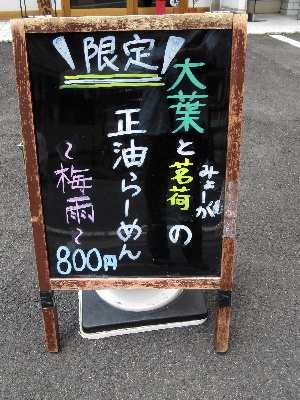 限定
大葉と茗荷の
みょーが
正油らーめん
~梅雨~
800円